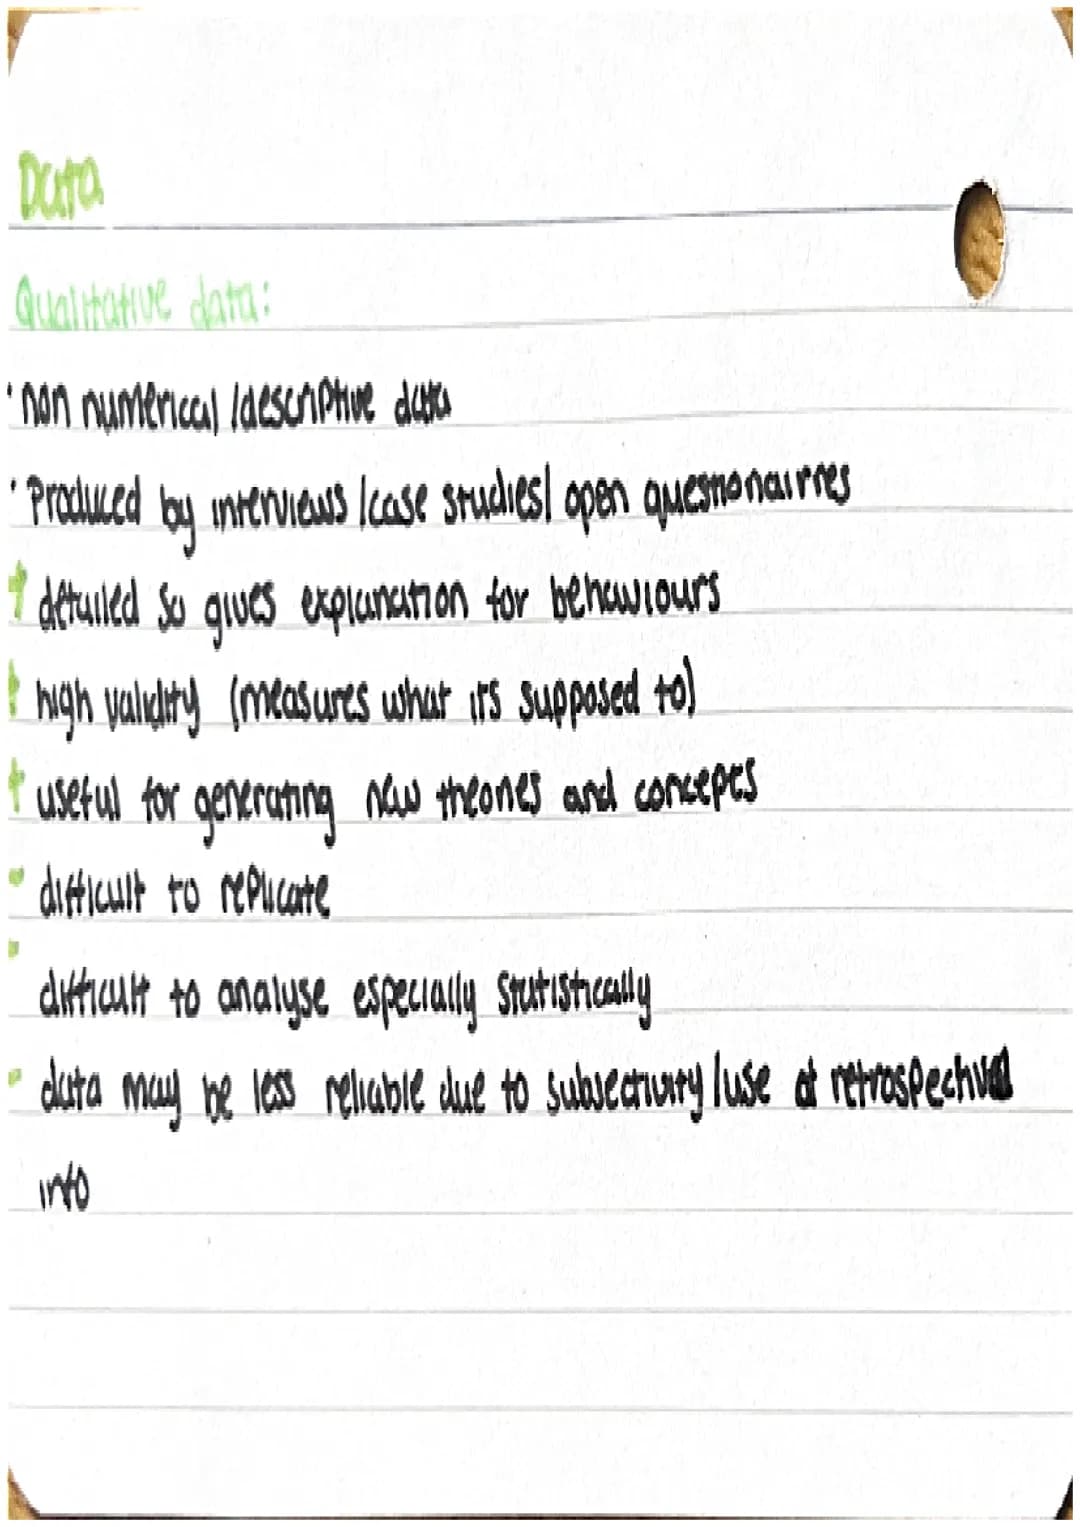 Data
Qualitative data:
· non numerical / descriptive data
· Produced by interviews / case studies / open questionairres
+ detailed so gives explanation for behaviours
+ high validity (measures what it's supposed to)
+ useful for generating new theories and concepts
- difficult to replicate
- difficult to analyse especially statistically
- data may be less reliable due to subjectivity / use of
info